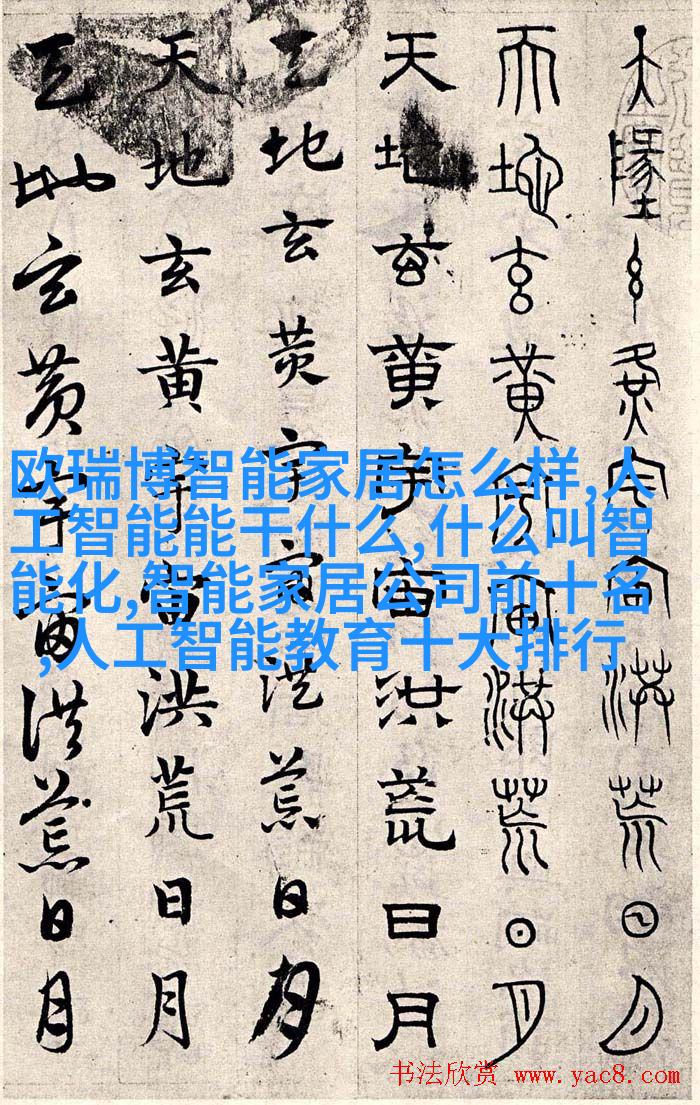 天地玄黃宇宙洪荒日月
天地玄黃宇宙洪荒日月
天地玄黃宇宙洪荒日月
天地玄黃宇宙洪荒日月
天地玄黃宇宙洪荒日月
天地玄黃宇宙洪荒日月
欧瑞博智能家居怎么样,人
工智能能干什么,什么叫智
能化,智能家居公司前十名
,人工智能教育十大排行
书法欣赏 www.yac8.com